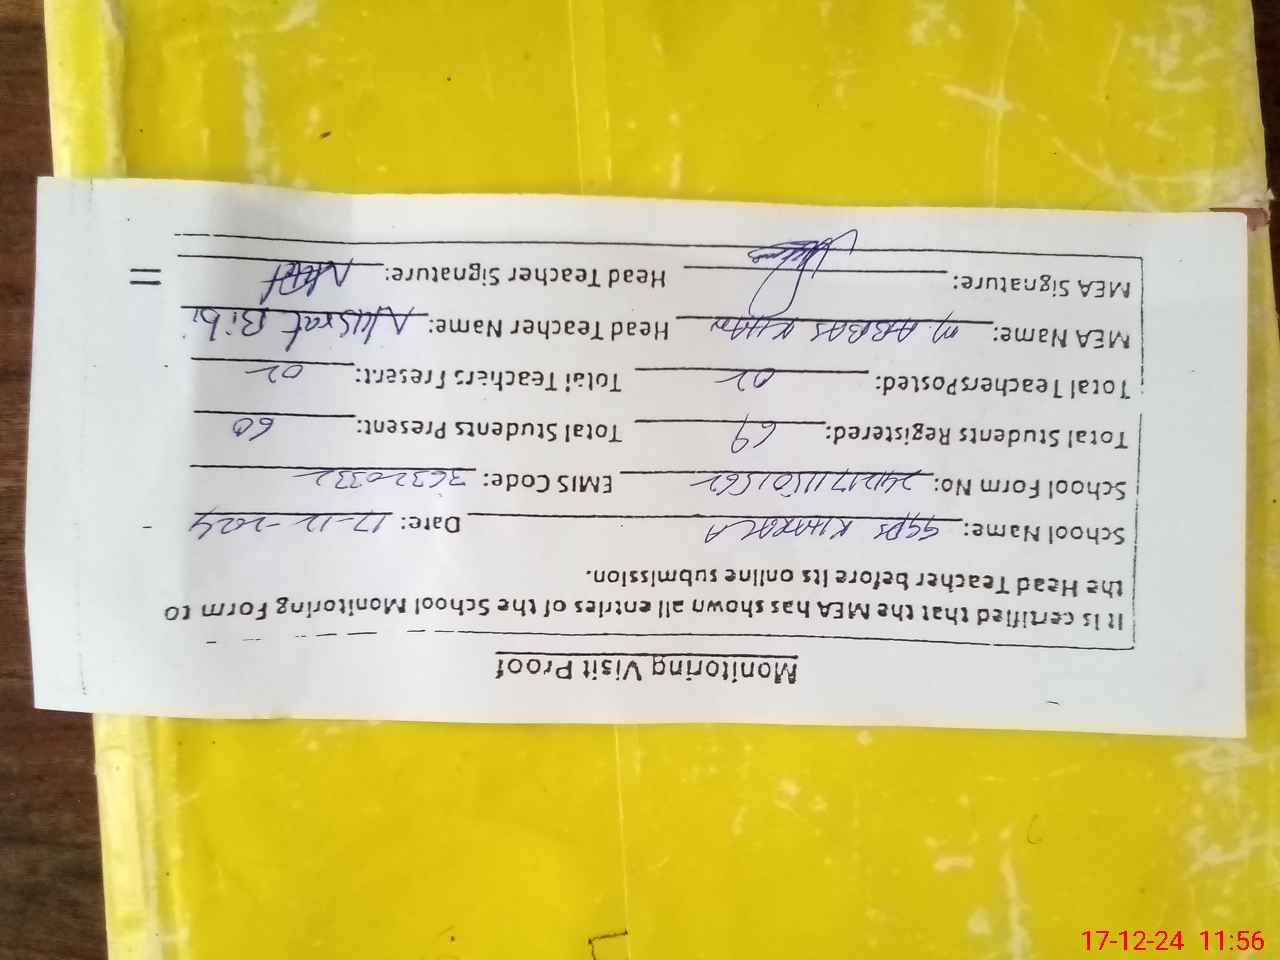 Monitoring Visit Proof
It is certified that the MEA has shown all entries of the School Monitoring Form to
the Head Teacher before its online submission.
School Name: GGPS KHARALA Date: 17-12-2024
School Form No: EMIS Code: 36320332
Total Students Registered: 69 Total Students Present: 60
Total TeachersPosted: 02 Total Teachers Present: 02
MEA Name: M. ABBAS KHAN Head Teacher Name: Nusrat Bibi
MEA Signature: Head Teacher Signature:
17-12-24 11:56